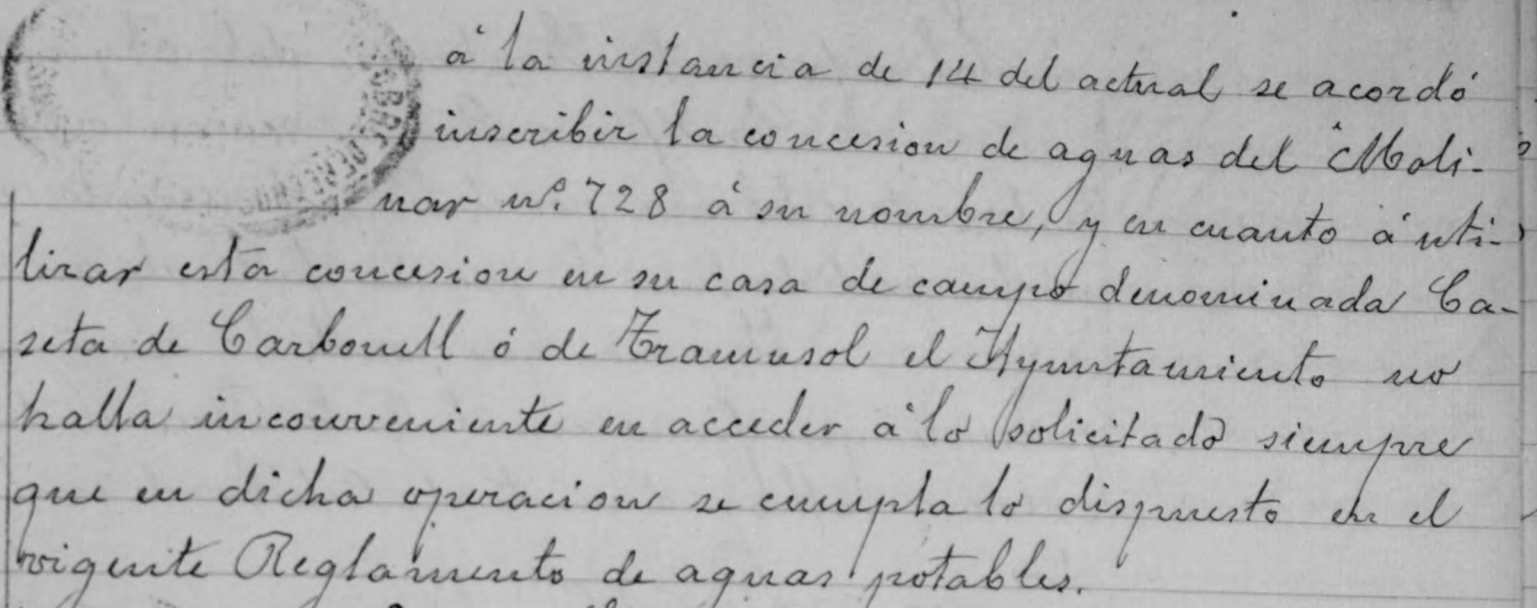 á la instancia de 14 del actual se acordó
inscribir la concesion de aguas del Moli-
nar nº. 728 á su nombre, y en cuanto á uti-
lizar esta concesion en su casa de campo denominada Ca-
seta de Carbonell ó de Tramusol el Ayuntamiento no
halla inconveniente en acceder á lo solicitado siempre
que en dicha operacion se cumpla lo dispuesto en el
vigente Reglamento de aguas potables.